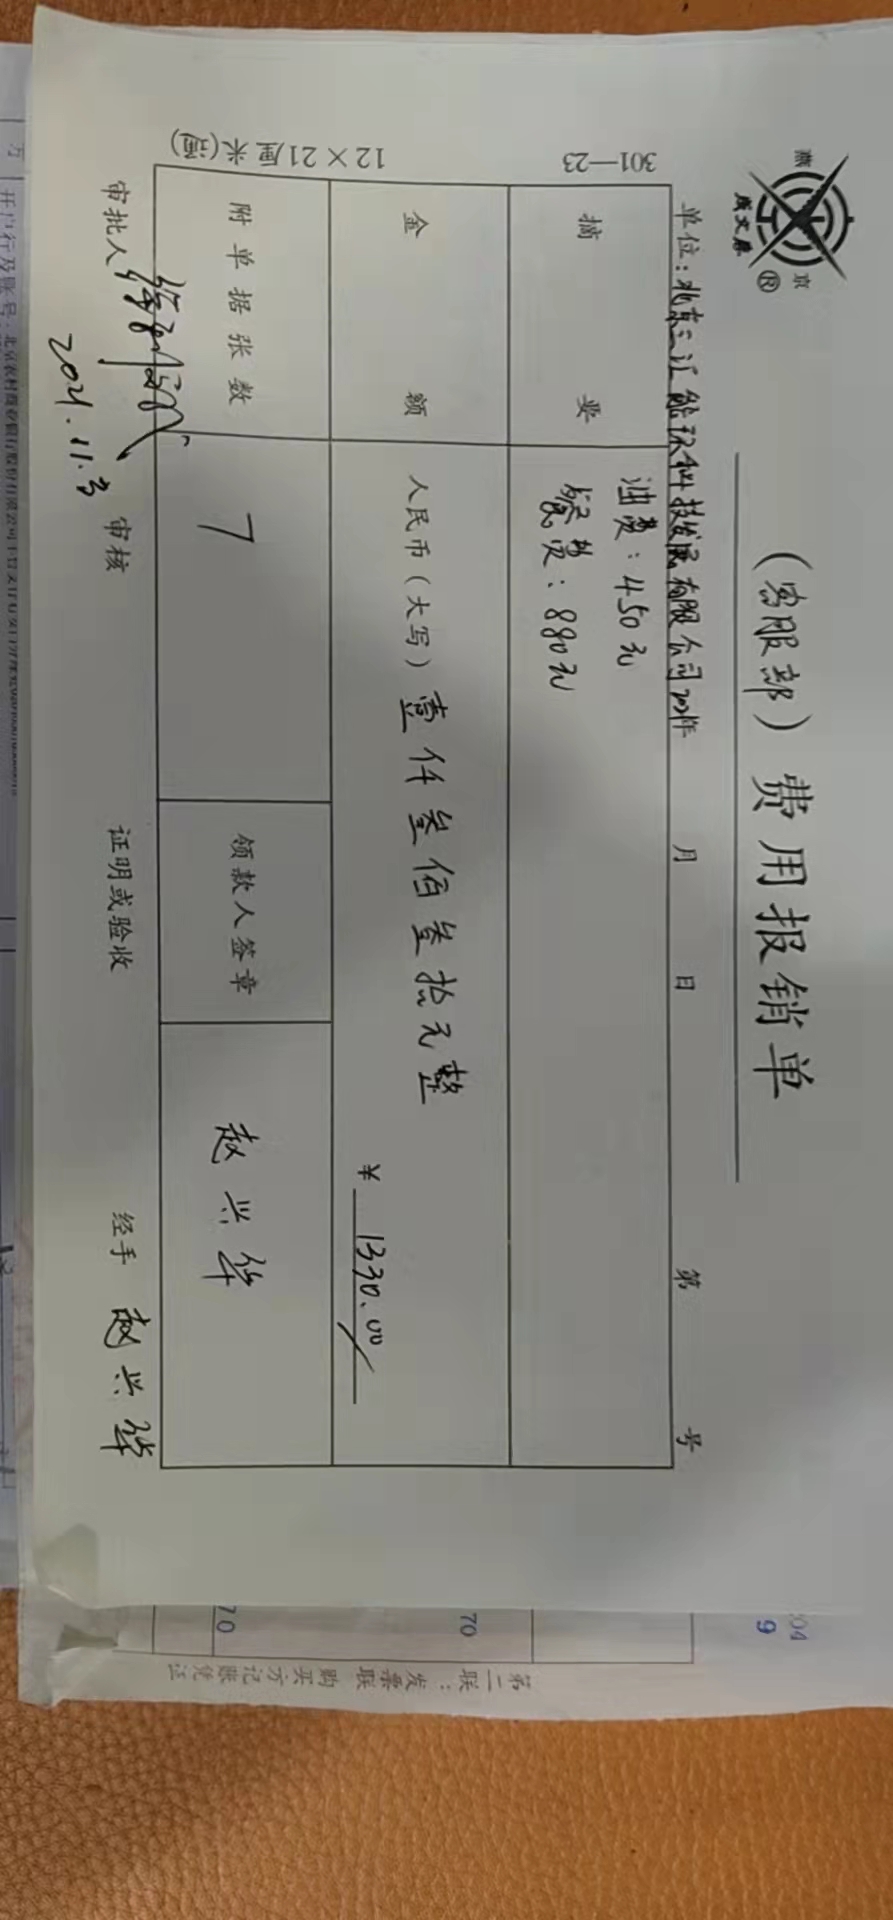 燕 京
成文厚
®
(客服部) 费用报销单
单位:北京三汇能环科技发展有限公司 2021年 月 日 第 号
301—23
摘要
油费:450元
餐费:880元
金额
人民币(大写) 壹仟叁佰叁拾元整
¥ 1330.00
12×21厘米(通)
附单据张数
7
领款人签章
赵兴华
审批人
2021.11.3
审核
证明或验收
经手 赵兴华
04
9
70
70
第二联:发票联 购买方记账凭证
方
开户行及账号: